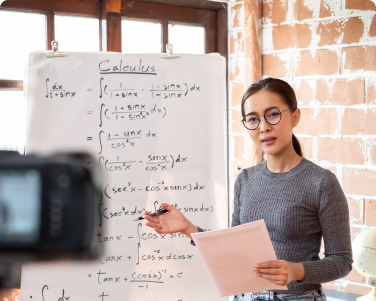 Calculus
∫ dx/(1+sinx) = ∫(1/(1+sinx) · (1-sinx)/(1-sinx)) dx
= ∫((1-sinx)/(1-sin²x)) dx
= ∫ (1-sinx)/cos²x dx
∫(1/cos²x - sinx/cos²x) dx
∫(sec²x - cos⁻²x sinx) dx
∫sec²x dx
tanx
= tanx + ∫cos⁻²x dcosx
= tanx + (cosx)⁻¹/-1 + c
∫ dx